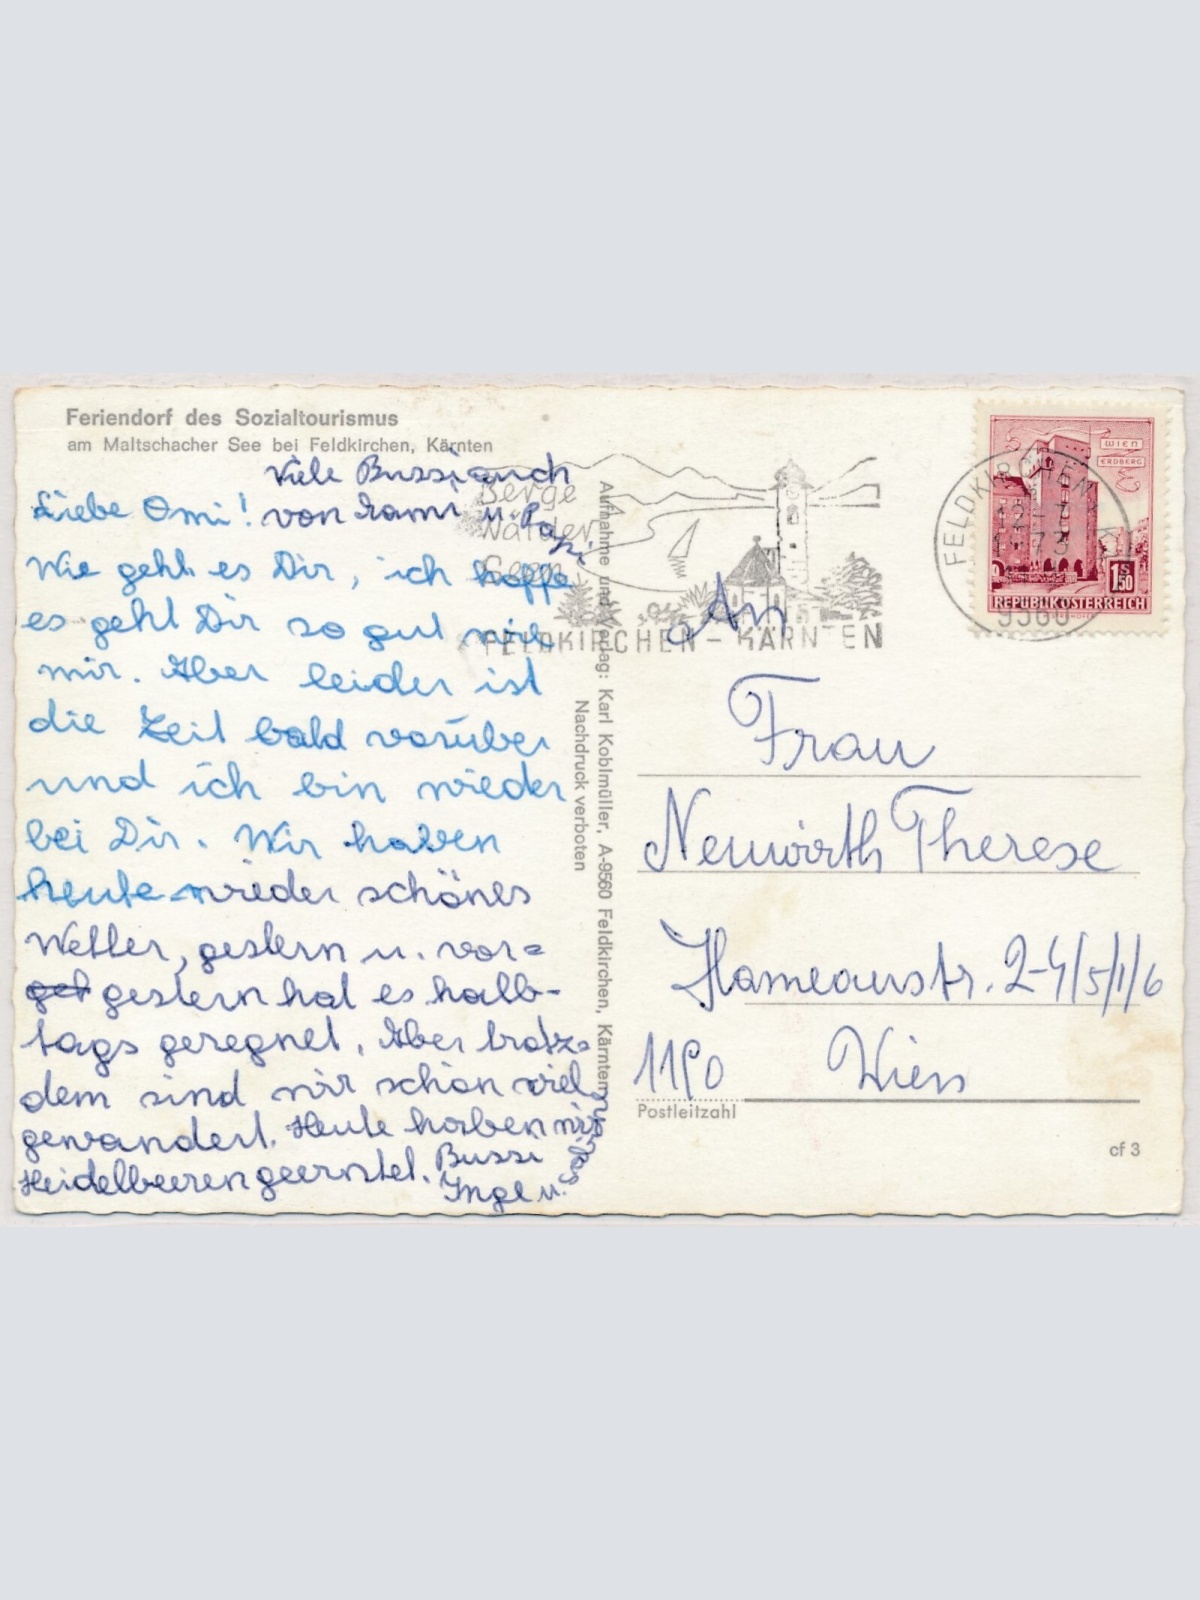 Feriendorf des Sozialtourismus
am Maltschacher See bei Feldkirchen, Kärnten
Viele Bussi auch
von Mami u. Pa
pi
Liebe Omi!
Wie geht es Dir, ich hoffe
es geht Dir so gut wie
mir. Aber leider ist
die Zeit bald vorüber
und ich bin wieder
bei Dir. Wir haben
heute wieder schönes
Wetter, gestern u. vor=
gestern hat es halb-
tags geregnet. Aber trotz=
dem sind wir schon viel
gewandert. Heute haben wir
Heidelbeeren geerntet. Bussi
Inge u.
Aufnahme und Verlag: Karl Koblmüller, A-9560 Feldkirchen, Kärnten
Nachdruck verboten
Berge
Wälder
Seen
FELDKIRCHEN - KÄRNTEN
FELDKIRCHEN
12-7
1973
9560
WIEN
ERDBERG
1S50
REPUBLIK ÖSTERREICH
An
Frau
Neuwirth Therese
Hameaustr. 2-4/5/1/6
1190 Wien
Postleitzahl
cf 3